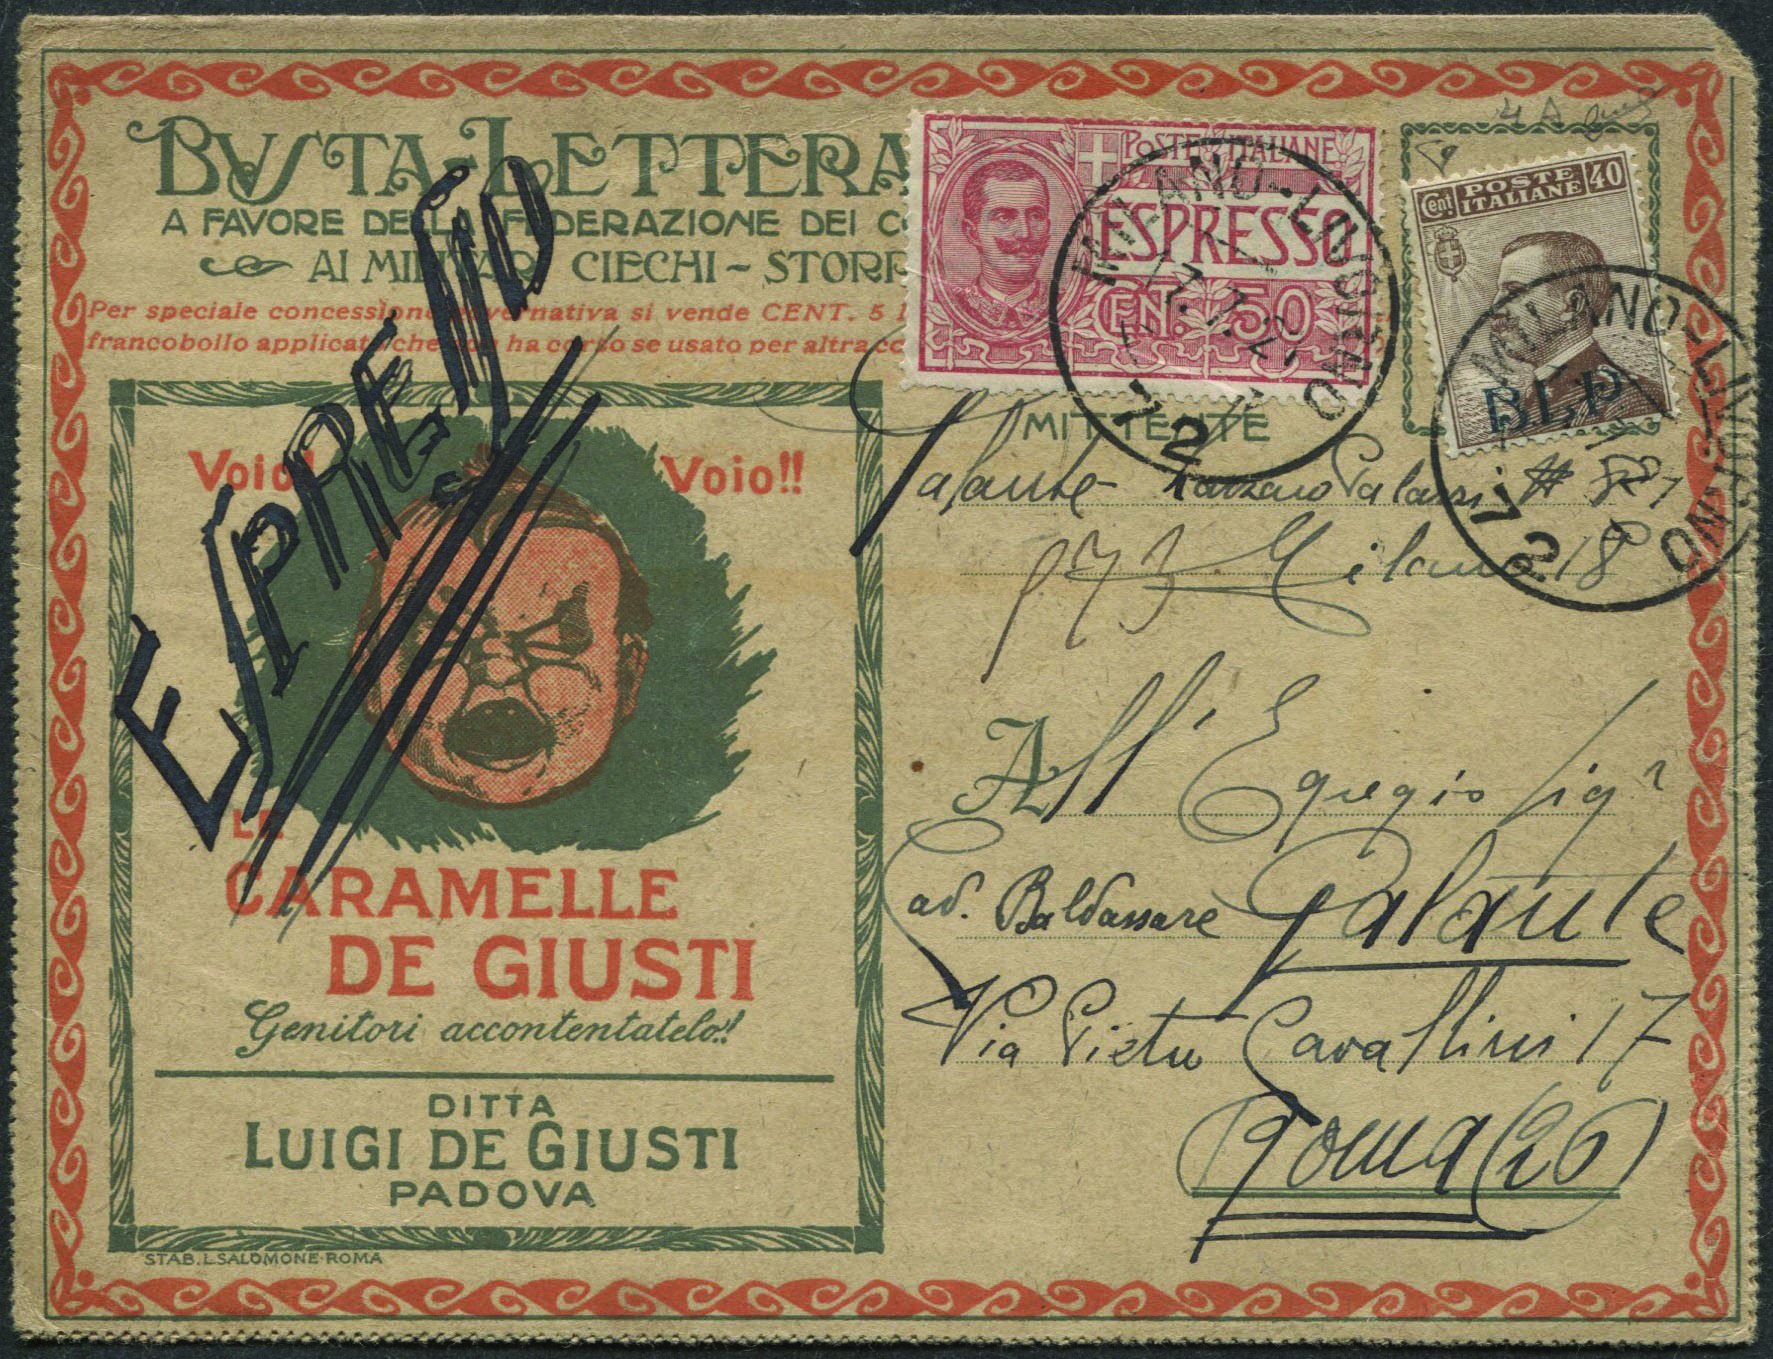 BUSTA-LETTERA
A FAVORE DELLA FEDERAZIONE DEI C
AI MILITARI CIECHI - STORP
Per speciale concessione governativa si vende CENT. 5
francobollo applicato che non ha corso se usato per altra co
ESPRESSO
POSTE ITALIANE
ESPRESSO
CENT. 50
Cent. POSTE ITALIANE 40
BLP
MILANO-LUOGHINO
17.7.2
72
MILANO-LUOGHINO
72
MITTENTE
Galante Palazzi # 
973 Milano 18
Voio! Voio!!
LE
CARAMELLE
DE GIUSTI
Genitori accontentatelo!!
DITTA
LUIGI DE GIUSTI
PADOVA
STAB. L. SALOMONE-ROMA
All' Egregio Sigr
Baldassare Galante
Via Pietro Cavallini 17
Roma (26)